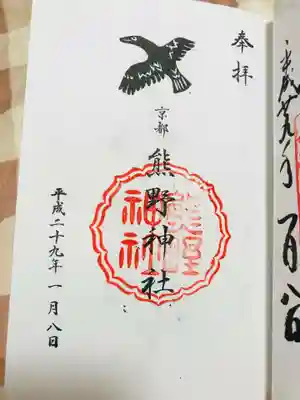 奉拝
京都
熊野神社
熊野
神社
平成二十九年一月八日